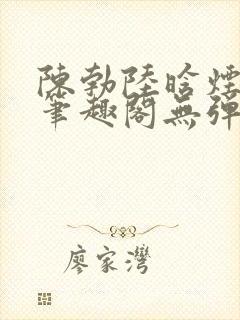 陳勃陸晗煙
筆趣閣無彈
廖家灣